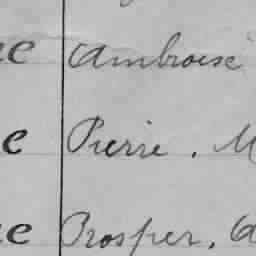 e Ambroise
e Pierre. M
e Prosper, A